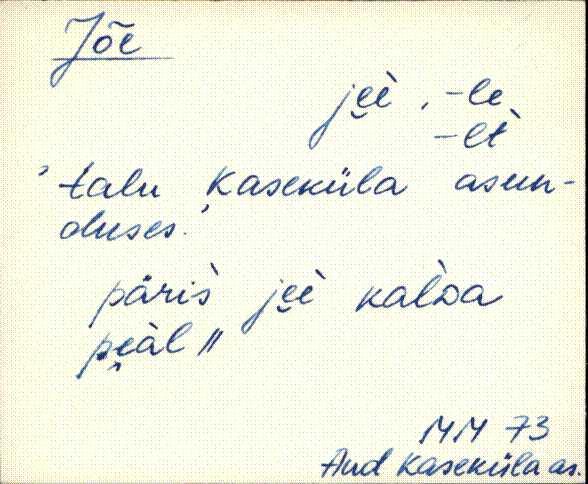 Jõe
jẹè, -le
-lt
'talu Kaseküla asun-
duses.'
päris̀ jẹè kal̀da
pẹàl //
MM 73
Aud Kaseküla as.